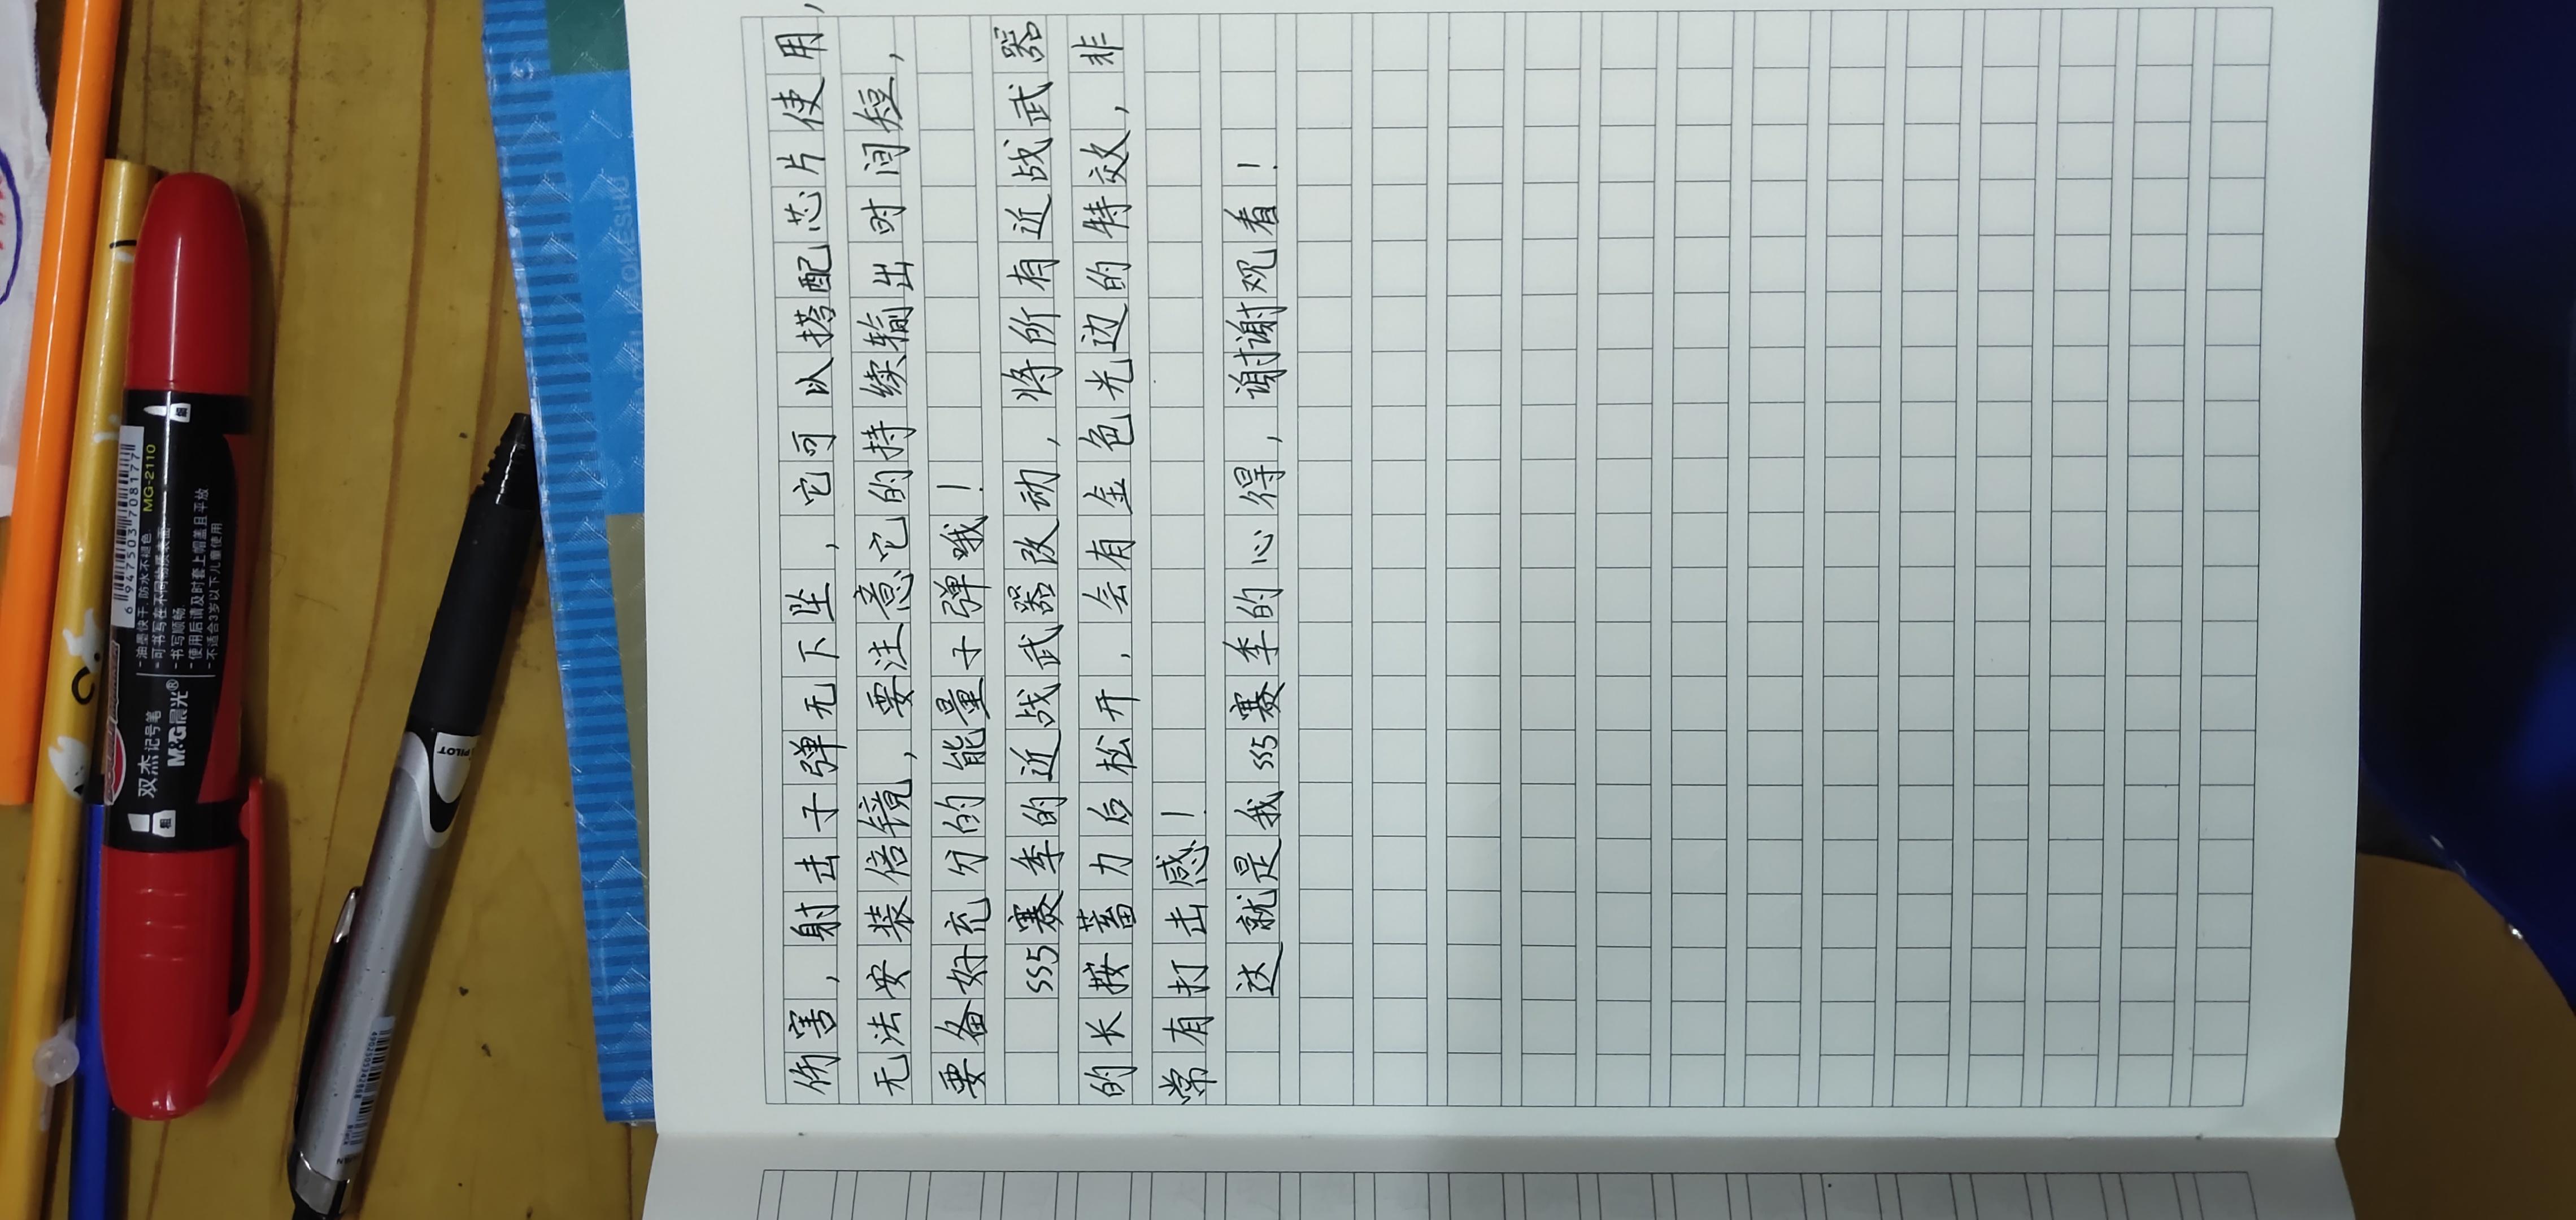 伤害，射击子弹无下坠，它可以搭配芯片使用，
无法安装倍镜，要注意它的持续输出时间短，
要备好充分的能量子弹哦！
SS5赛季的近战武器改动，将所有近战武器
的长按蓄力后松开，会有金色光边的特效，非
常有打击感！
这就是我SS5赛季的心得，谢谢观看！
双杰记号笔
M&G晨光®
MG-2110
6 947503 708177
-油墨快干,防水不褪色
-书写顺畅
-使用后请及时套上帽盖且平放
-不适合3岁以下儿童使用
PILOT